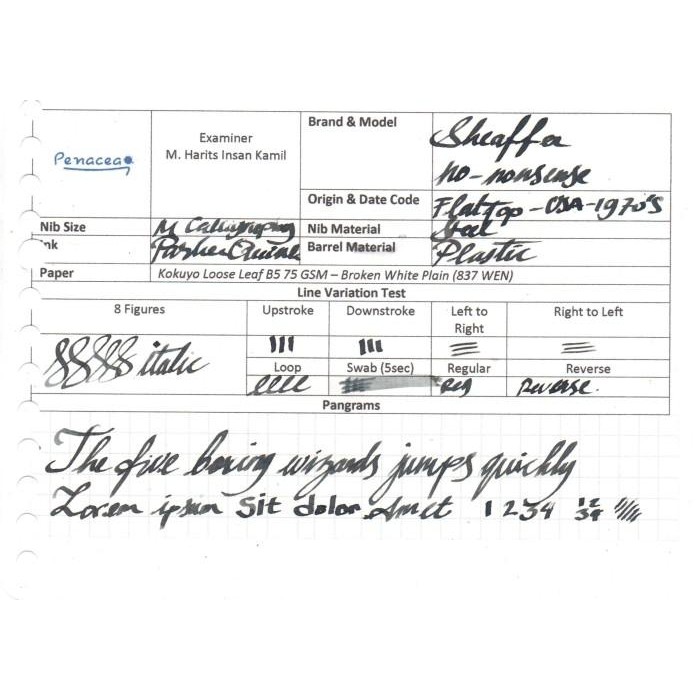 Penacea
Examiner
M. Harits Insan Kamil
Brand & Model
Sheaffer
no-nonsense
Origin & Date Code
Flat Top - USA - 1970's
Nib Size
M Calligraphy
Nib Material
Steel
Ink
Parker Quink
Barrel Material
Plastic
Paper
Kokuyo Loose Leaf B5 75 GSM – Broken White Plain (837 WEN)
Line Variation Test
8 Figures
Upstroke
Downstroke
Left to
Right
Right to Left
8888 italic
Loop
Swab (5sec)
Regular
Reverse
eeee
Reg
Reverse.
Pangrams
The five boxing wizards jumps quickly
Lorem ipsum sit dolor Amet 1 2 3 4 12
34